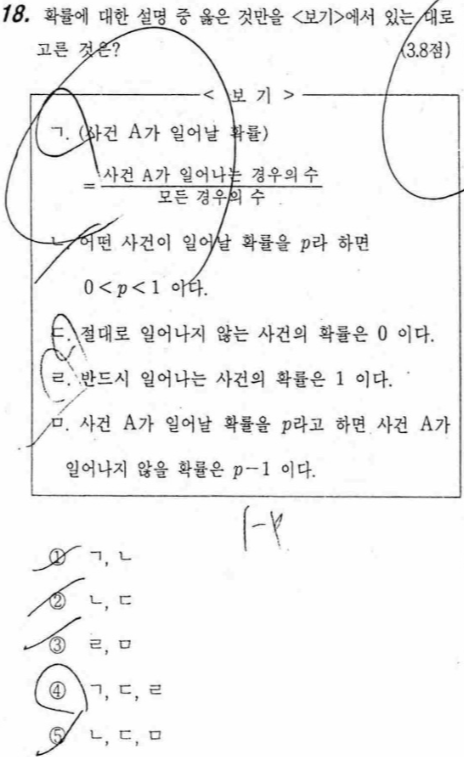 18. 확률에 대한 설명 중 옳은 것만을 <보기>에서 있는 대로
고른 것은? (3.8점)
< 보 기 >
ㄱ. (사건 A가 일어날 확률)
= 사건 A가 일어나는 경우의 수
모든 경우의 수
ㄴ. 어떤 사건이 일어날 확률을 p라 하면
0 < p < 1 이다.
ㄷ. 절대로 일어나지 않는 사건의 확률은 0 이다.
ㄹ. 반드시 일어나는 사건의 확률은 1 이다.
ㅁ. 사건 A가 일어날 확률을 p라고 하면 사건 A가
일어나지 않을 확률은 p-1 이다.
1-p
① ㄱ, ㄴ
② ㄴ, ㄷ
③ ㄹ, ㅁ
④ ㄱ, ㄷ, ㄹ
⑤ ㄴ, ㄷ, ㅁ